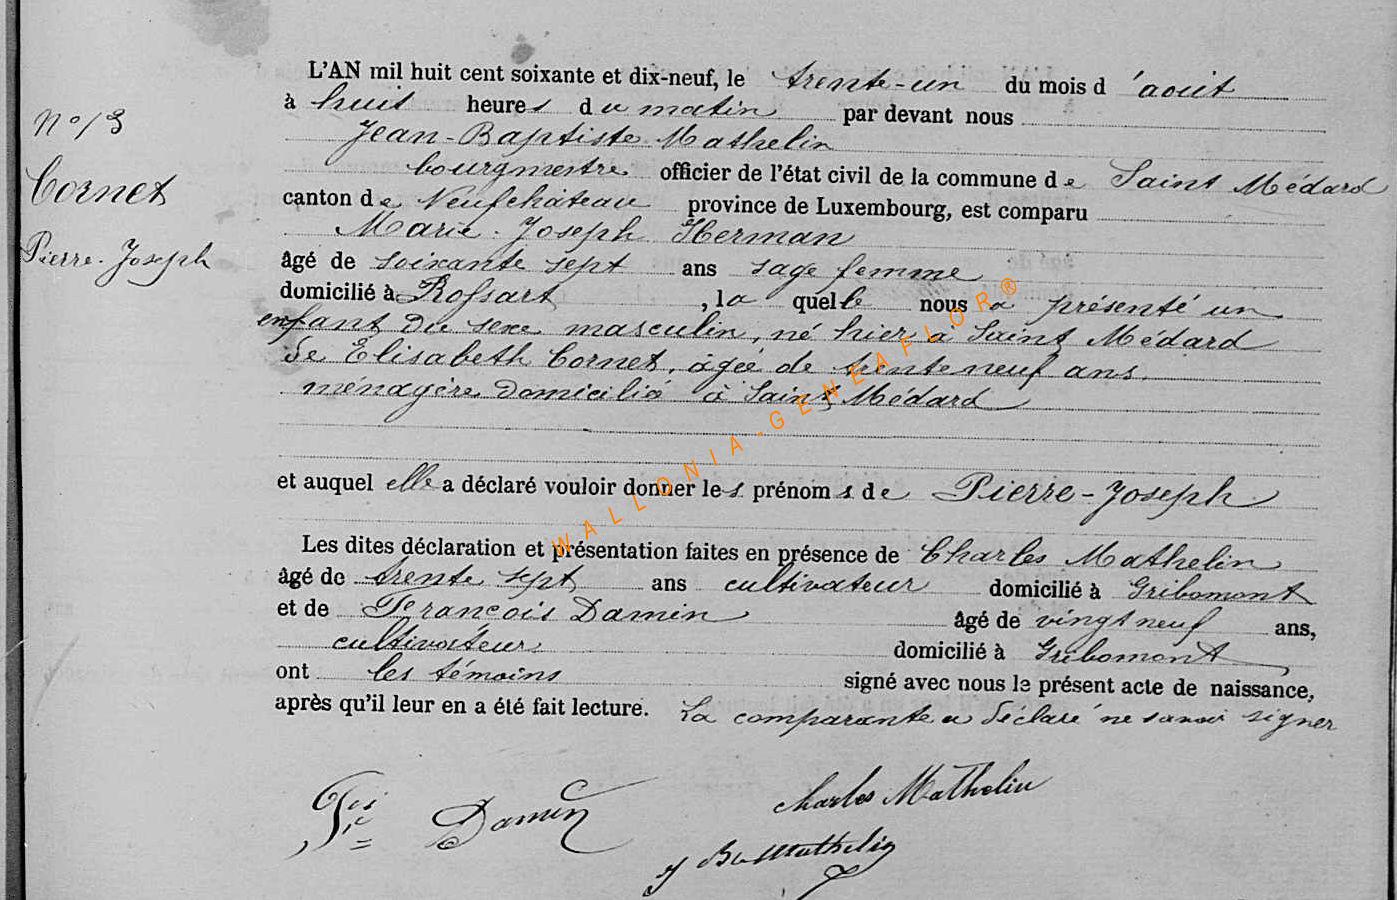 L'AN mil huit cent soixante et dix-neuf, le trente-un du mois d'août
à huit heures du matin par devant nous
Jean-Baptiste Mathelin
bourgmestre officier de l'état civil de la commune de Saint Médard
canton de Neufchâteau province de Luxembourg, est comparu
Marie-Joseph Herman
âgé de soixante sept ans sage femme
domicilié à Rossart, laquelle nous a présenté un
enfant du sexe masculin, né hier à Saint Médard
de Elisabeth Cornet, âgée de trente neuf ans
ménagère domicilié à Saint Médard
et auquel elle a déclaré vouloir donner les prénoms de Pierre-Joseph
Les dites déclaration et présentation faites en présence de Charles Mathelin
âgé de trente sept ans cultivateur domicilié à Gribomont
et de François Damin âgé de vingt neuf ans,
cultivateur domicilié à Gribomont
ont les témoins signé avec nous le présent acte de naissance,
après qu'il leur en a été fait lecture. La comparante a déclaré ne savoir signer
N° 13
Cornet
Pierre-Joseph
Fçis Damin
Charles Mathelin
J Bte Mathelin
WALLONIA-GENEAFLOR®